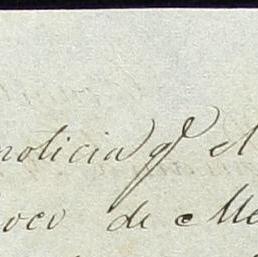 noticia q.^e el
oco de Me